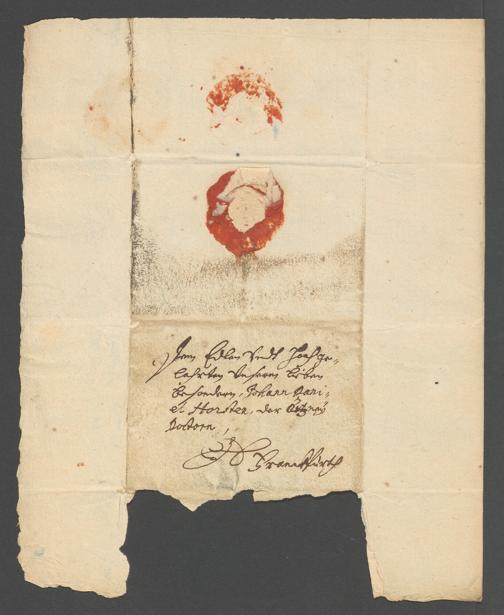 Dem Edlen Undt Hochge-
lahrten Unserm lieben
besondern, Johann Dani-
el Horsten, der Artzney
Doctorn,
Franckfurth